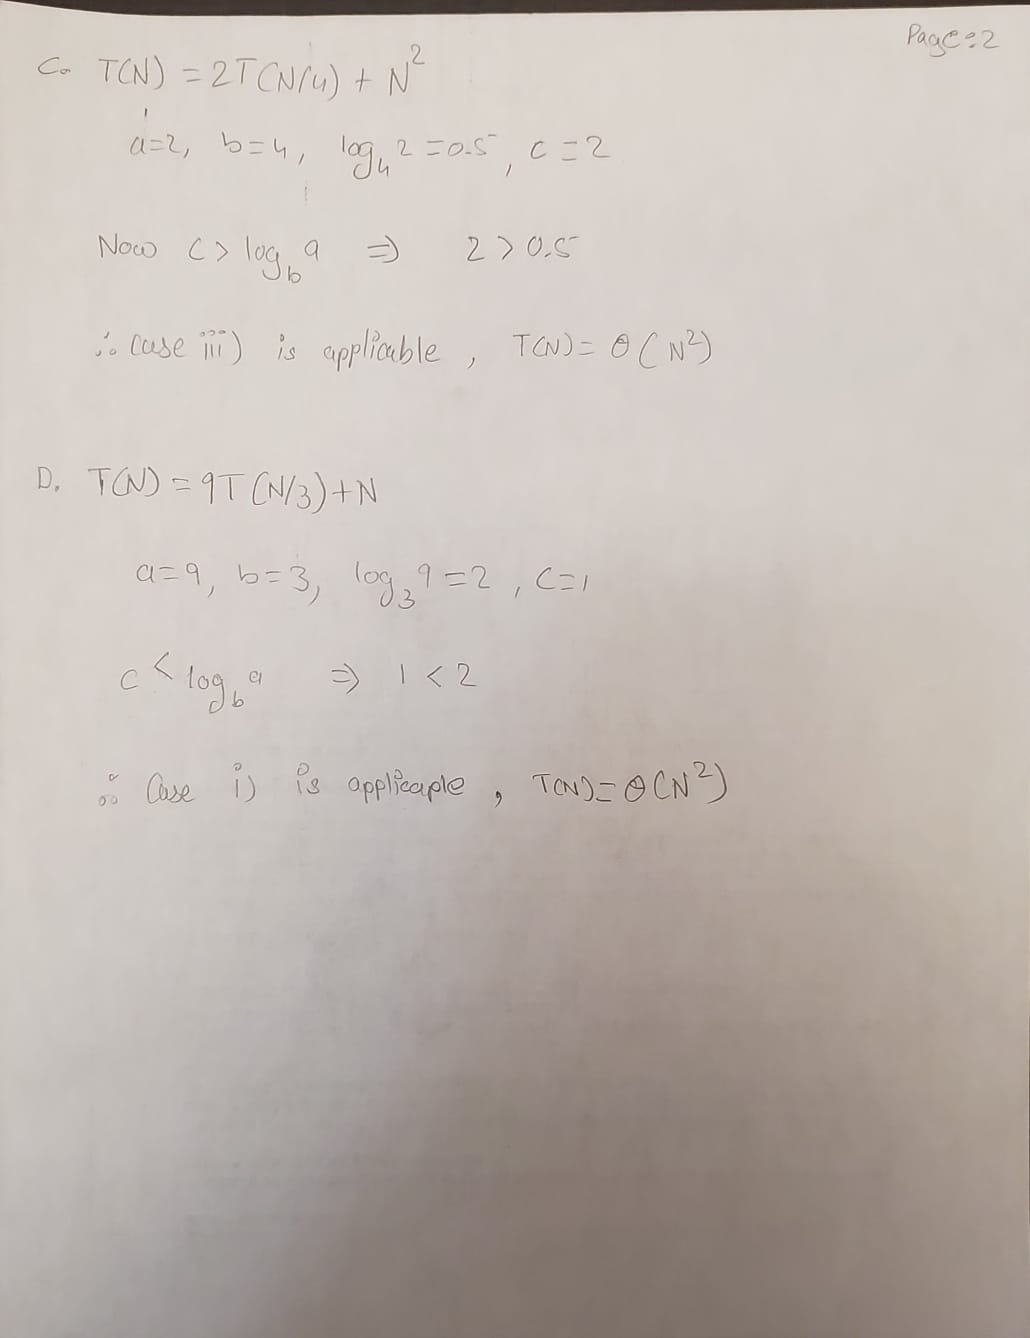 Page:2
C. T(N) = 2T(N/4) + N²
a=2, b=4, log₄2=0.5, c=2
Now c > log_b a ⇒ 2 > 0.5
∴ Case iii) is applicable, T(N) = θ(N²)
D. T(N) = 9T(N/3)+N
a=9, b=3, log₃9=2, c=1
c < log_b a ⇒ 1 < 2
∴ Case i) is applicaple, T(N) = θ(N²)